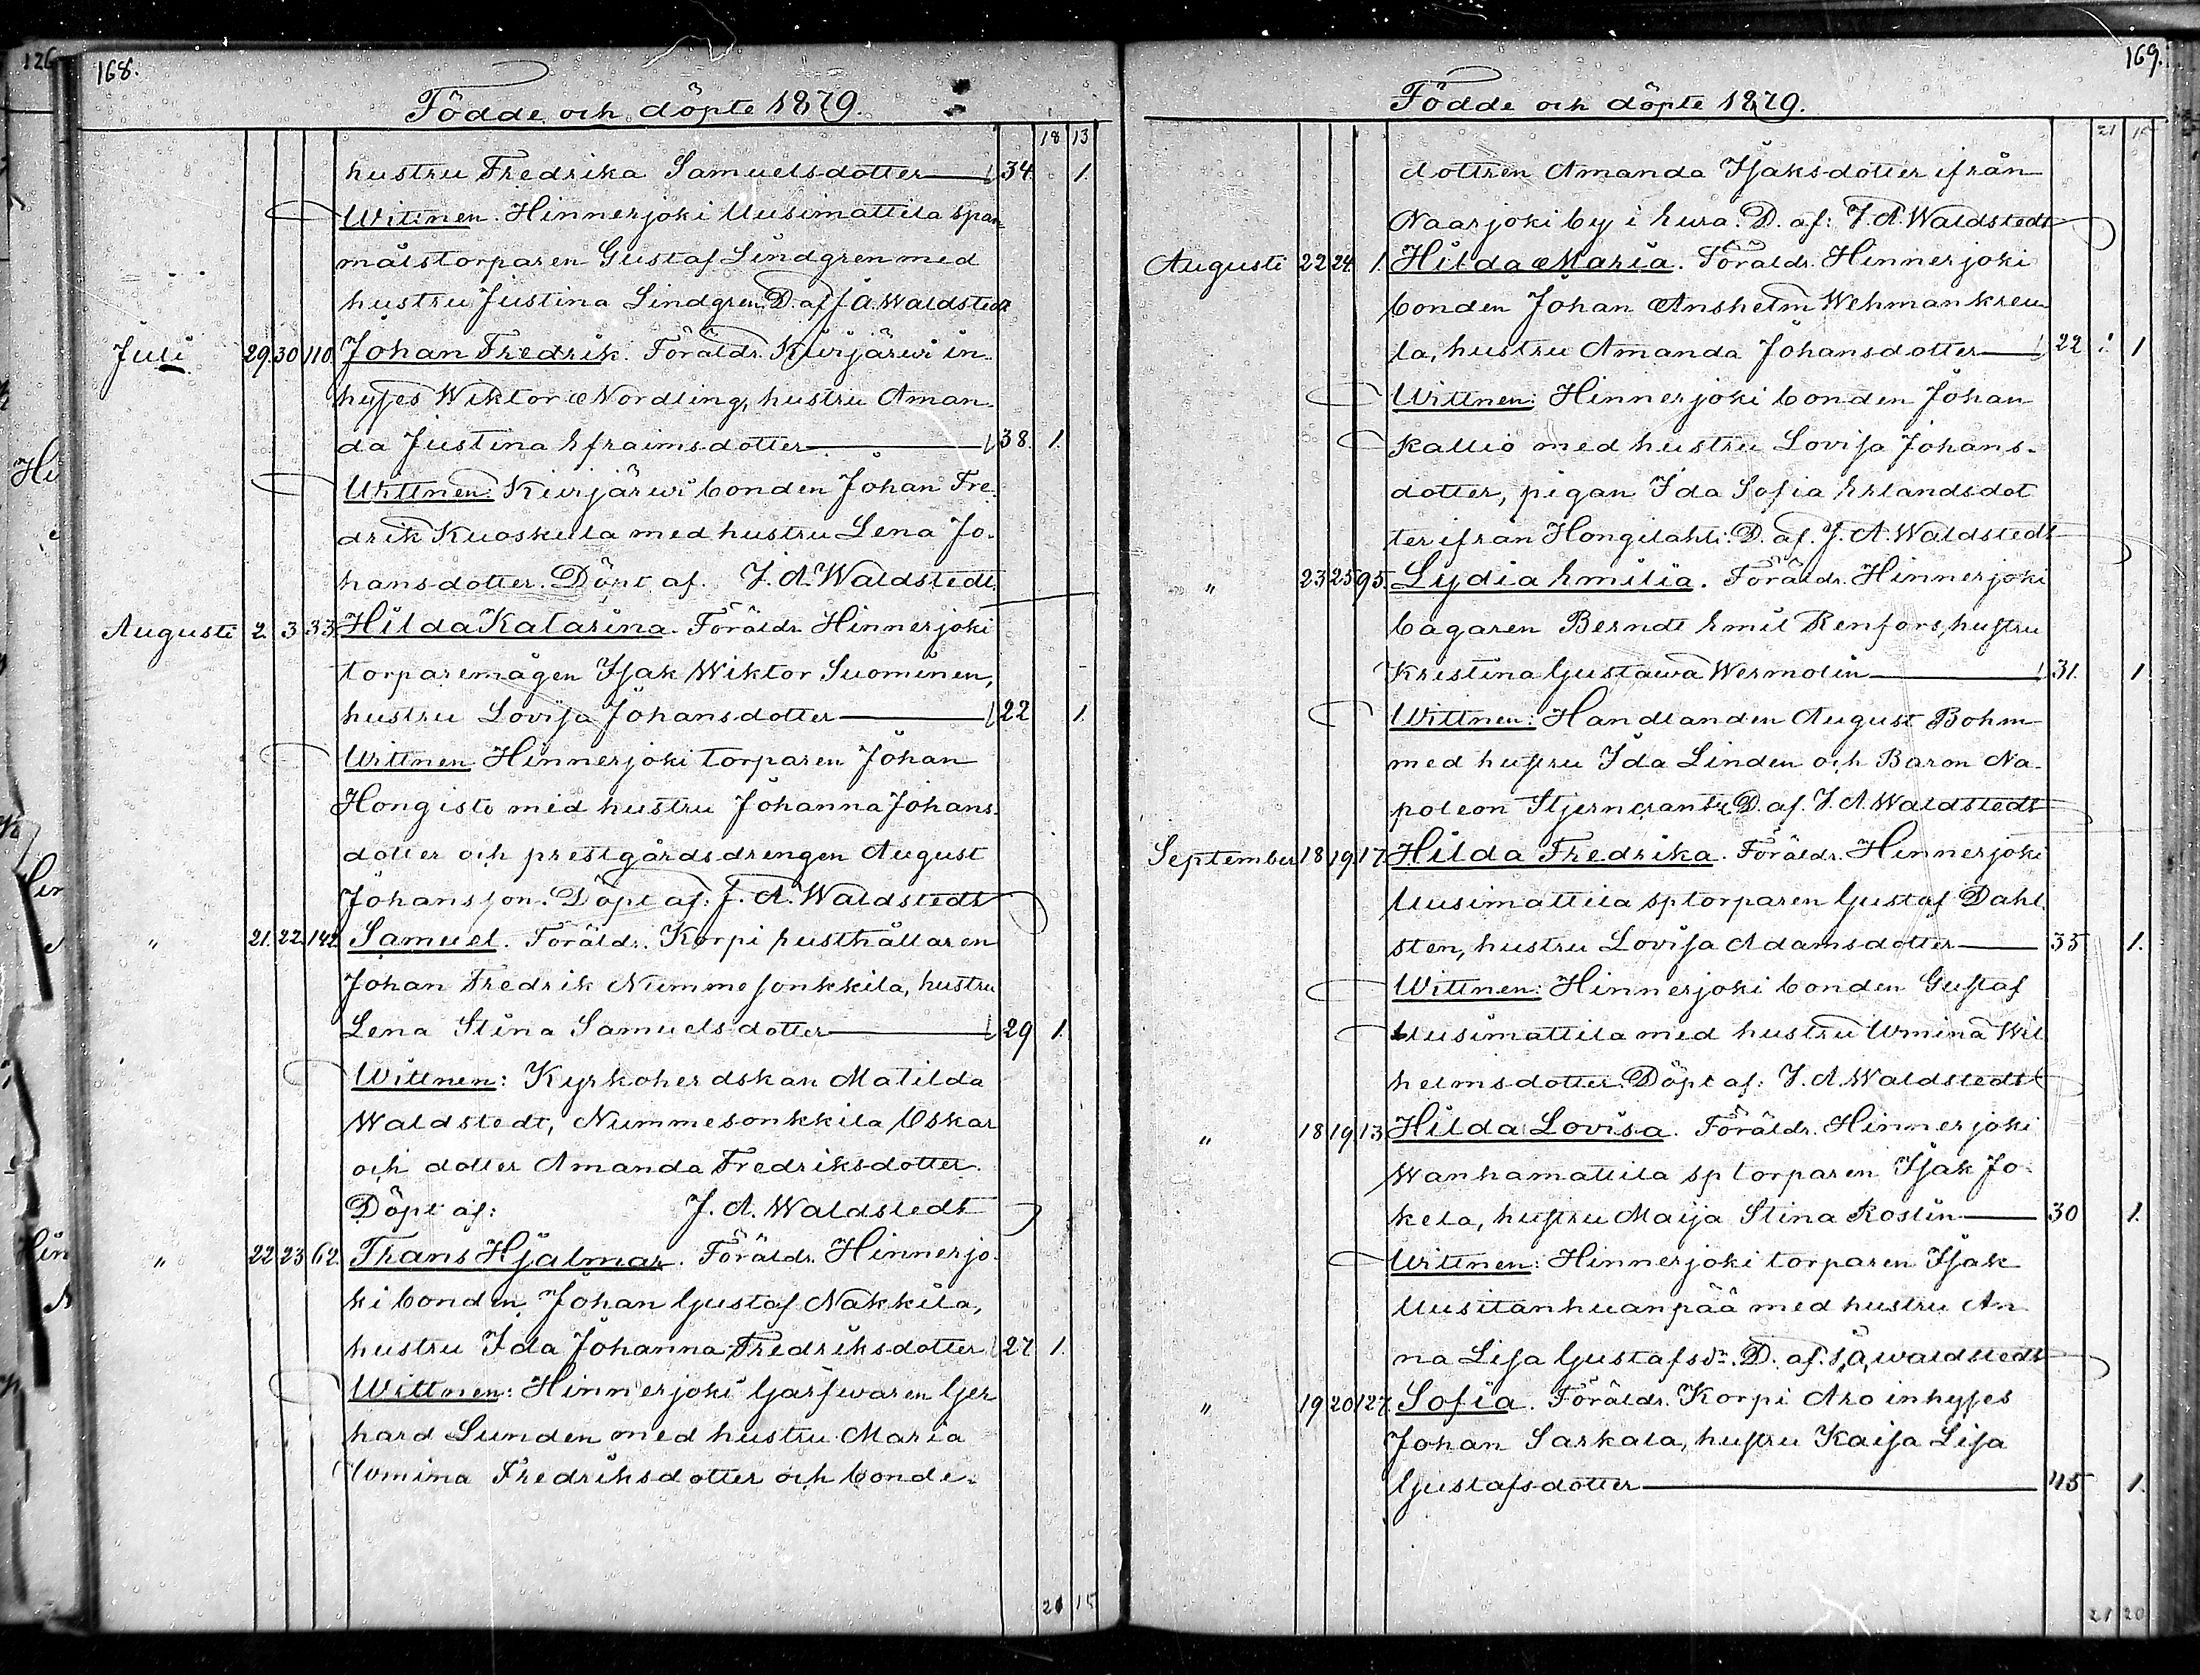 126
168.
Födde och döpte 1879.
18 13
hustru Fredrika Samuelsdotter 34. 1.
Wittnen. Hinnerjoki Uusimattila span-
målstorparen Gustaf Lindgren med
hustru Justina Lindgren. D. af J. A. Waldstedt
Juli 29. 30 110. Johan Fredrik. Föräldr. Kivijärwi in-
hyses Wiktor Nordling, hustru Aman-
da Justina Efraimsdotter 38. 1.
Wittnen: Kivijärwi bonden Johan Fre-
drik Kuoskila med hustru Lena Jo-
hansdotter. Döpt af. J. A. Waldstedt.
Augusti 2. 3 33. Hilda Katarina. Föräldr. Hinnerjoki
torparemågen Isak Wiktor Suominen,
hustru Lovisa Johansdotter 22 1.
Wittnen Hinnerjoki torparen Johan
Hongisto med hustru Johanna Johans-
dotter och prestgårdsdrengen August
Johansson. Döpt af: J. A. Waldstedt
" 21. 22. 142. Samuel. Föräldr. Korpi rusthållaren
Johan Fredrik Nummesonkkila, hustru
Lena Stina Samuelsdotter 29 1.
Wittnen: Kyrkoherdskan Matilda
Waldstedt, Nummesonkkila Oskar
och dotter Amanda Fredriksdotter.
Döpt af: J. A. Waldstedt
" 22 23 62. Frans Hjalmar. Föräldr. Hinnerjo-
ki bonden Johan Gustaf Nakkila,
hustru Ida Johanna Fredriksdotter 27 1.
Wittnen: Hinnerjoki Garfwaren Ger-
hard Sunden med hustru Maria
Wmina Fredriksdotter och bonde-
21 15
169.
Födde och döpte 1879.
21 15
dottren Amanda Isaksdotter ifrån
Naarjoki by i Eura. D. af: J. A. Waldstedt
Augusti 22 24. 1. Hilda Maria. Föräldr. Hinnerjoki
bonden Johan Anshelm Wehmankreu-
la, hustru Amanda Johansdotter 22 1
Wittnen: Hinnerjoki bonden Johan
Kallio med hustru Lovisa Johans-
dotter, pigan Ida Sofia Erlandsdot
ter ifrån Hongilahti. D. af. J. A. Waldstedt
" 23 25 95. Lydia Emilia. Föräldr. Hinnerjoki
bagaren Berndt Emil Renfors, hustru
Kristina Gustawa Wermolin 31. 1.
Wittnen: Handlanden August Bohm
med hustru Ida Linden och Baron Na-
poleon Stjerncrantz D. af. J. A. Waldstedt
September 18 19. 17. Hilda Fredrika. Föräldr. Hinnerjoki
Uusimattila sptorparen Gustaf Dahl-
sten, hustru Lovisa Adamsdotter 35 1.
Wittnen: Hinnerjoki bonden Gustaf
Uusimattila med hustru Wmina Wil
helmsdotter. Döpt af: J. A. Waldstedt
" 18 19 13 Hilda Lovisa. Föräldr. Hinnerjoki
Wanhamattila sptorparen Isak Jo-
kela, hustru Maija Stina Roslin 30 1.
Wittnen: Hinnerjoki torparen Isak
Uusitanhuanpää med hustru An-
na Lisa Gustafsdr. D. af. J. A. Waldstedt
" 19 20 127. Sofia. Föräldr. Korpi Aro inhyses
Johan Sarkala, hustru Kaisa Lisa
Gustafsdotter 45 1.
21 20